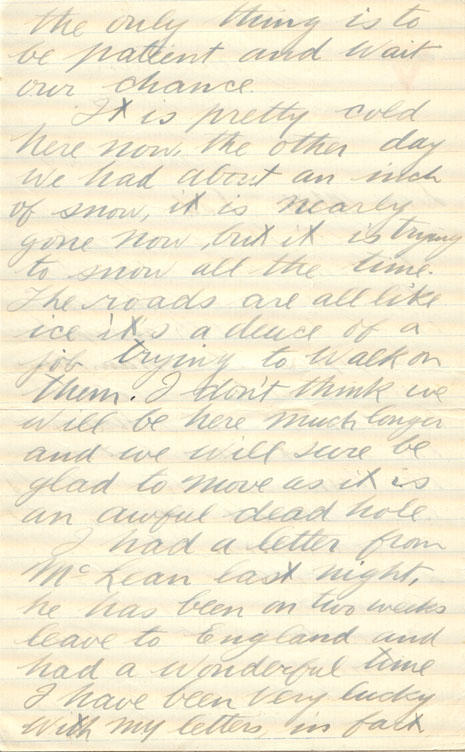 the only thing is to
be patient and wait
our chance.
It is pretty cold
here now, the other day
we had about an inch
of snow, it is nearly
gone now, but it is trying
to snow all the time.
The roads are all like
ice it's a deuce of a
job trying to walk on
them. I don't think we
will be here much longer
and we will sure be
glad to move as it is
an awful dead hole.
I had a letter from
McLean last night,
he has been on two weeks
leave to England and
had a wonderful time
I have been very lucky
with my letters, in fact